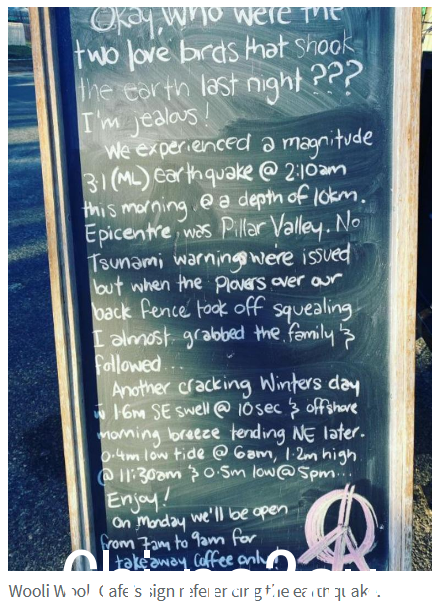 Okay, who were the
two love birds that shook
the earth last night ???
I'm jealous!
We experienced a magnitude
3.1 (ML) earthquake @ 2:10am
this morning @ a depth of 10km.
Epicentre was Pillar Valley. No
Tsunami warnings were issued
but when the Plovers over our
back fence took off squealing
I almost grabbed the family &
followed...
Another cracking Winters day
1.6m SE swell @ 10sec & offshore
morning breeze tending NE later.
0.4m low tide @ 6am, 1.2m high
@ 11:30am & 0.5m low @ 5pm...
Enjoy!
On Monday we'll be open
from 7am to 9am for
takeaway coffee only
Wooli Cafe sign the